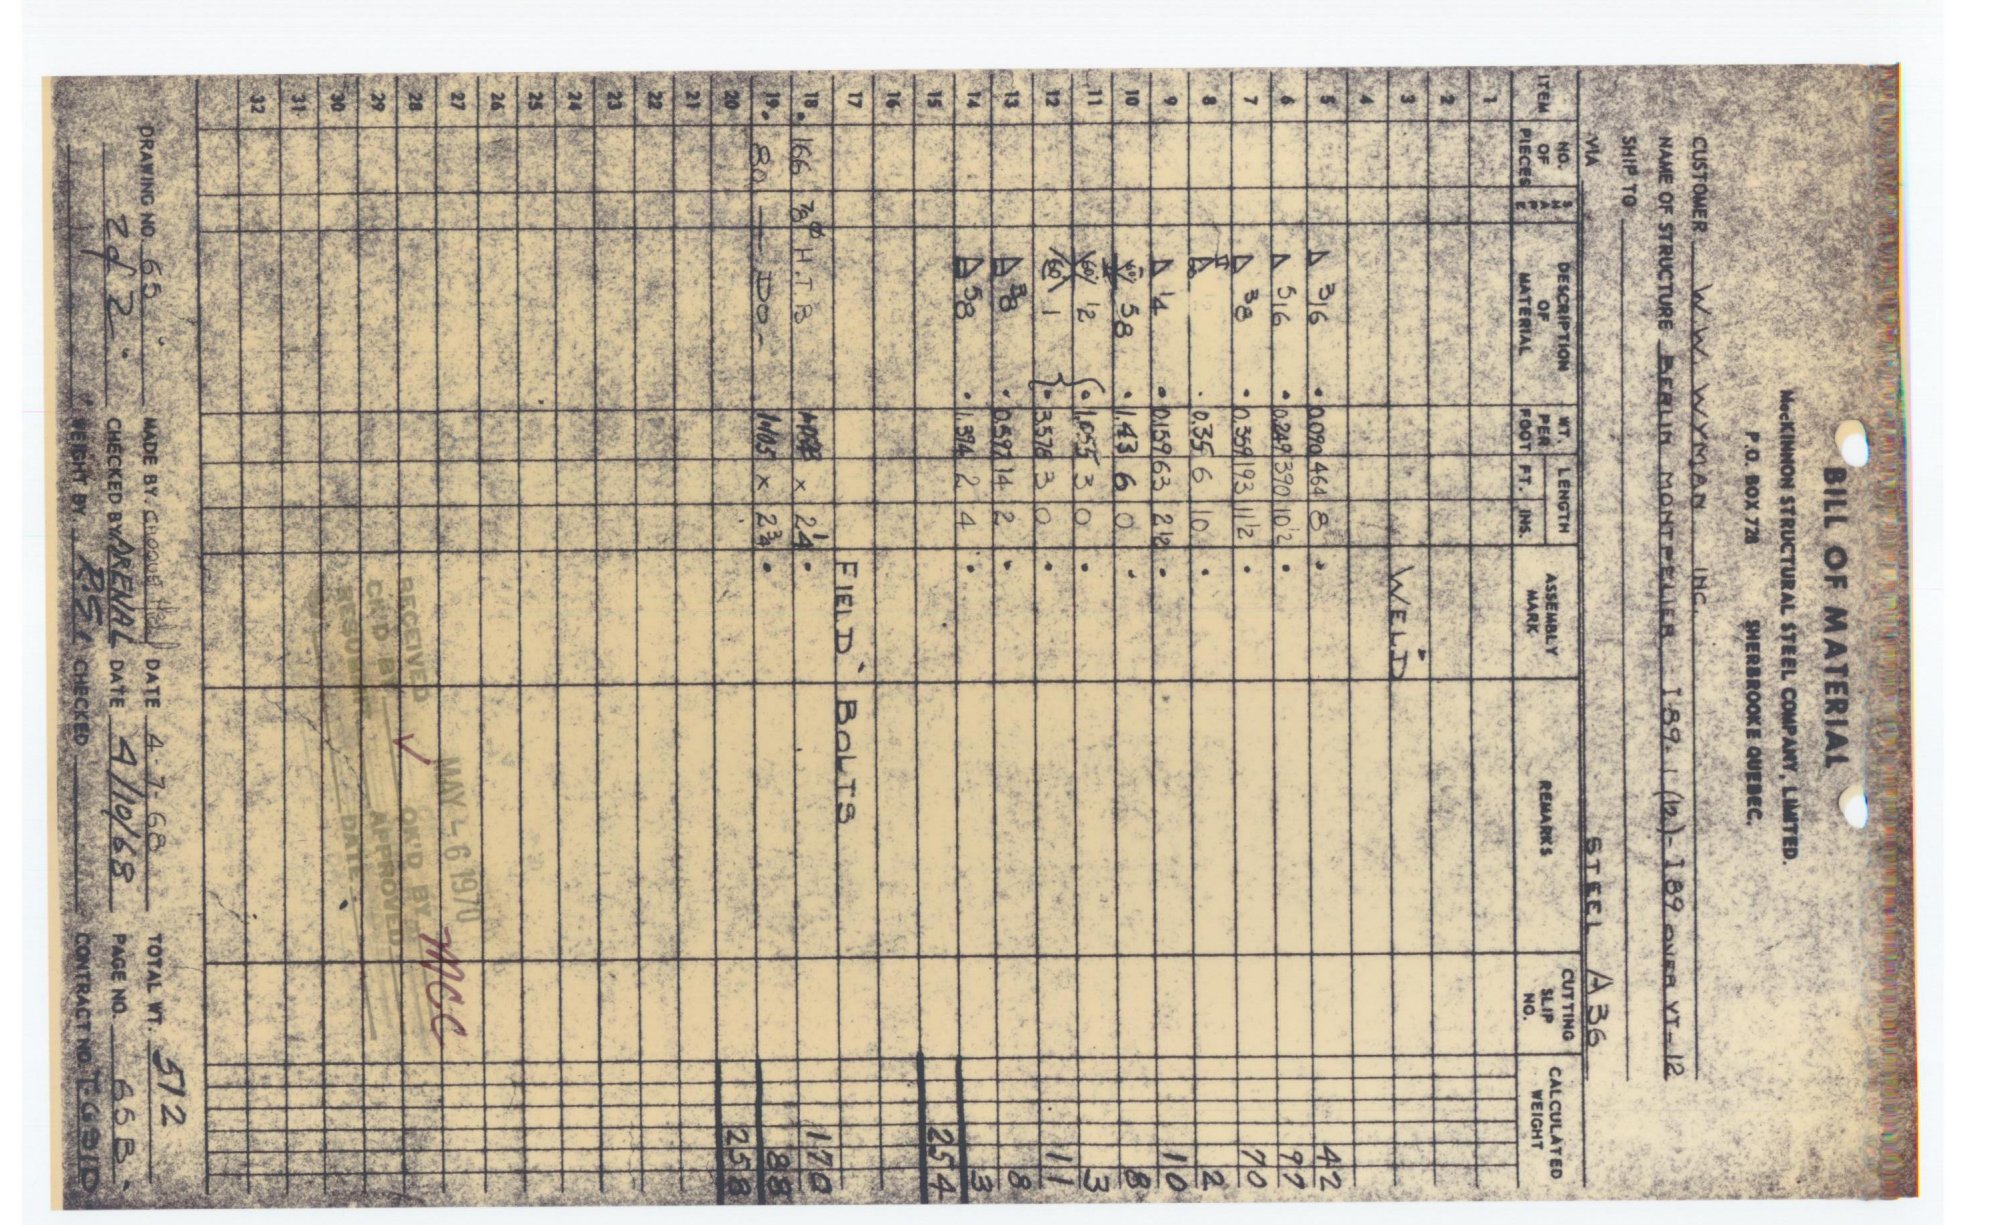 BILL OF MATERIAL
MacKINNON STRUCTURAL STEEL COMPANY, LIMITED.
P.O. BOX 728 SHERBROOKE QUEBEC.
CUSTOMER W.W. WYMAN INC.
NAME OF STRUCTURE BERLIN MONTPELIER I-89-1(12)-I 89 OVER VT-12
SHIP TO
VIA STEEL A36
ITEM NO. OF PIECES SHAPE DESCRIPTION OF MATERIAL WT. PER FOOT LENGTH FT. INS. ASSEMBLY MARK REMARKS CUTTING SLIP NO. CALCULATED WEIGHT
1
2
3 WELD
4
5 3/16 0.090 464 8 42
6 5/16 0.249 390 10 1/2 97
7 3/8 0.359 193 11 1/2 70
8 0.355 6 10 2
9 1/4 0.159 63 2 1/2 10
10 60° 5/8 1.43 6 0 8
11 60° 1/2 1.055 3 0 3
12 60° 1 3.578 3 0 11
13 3/8 0.597 14 2 8
14 5/8 1.394 2 4 3
15 254
16
17 FIELD BOLTS
18 166 7/8 ø H.T.B 2 1/4 170
19 80 DO 1.105 x 2 3/4 88
20 258
21
22
23
24
25
26
27
28
29
30
31
32
RECEIVED MAY - 6 1970
CK'D BY OK'D BY MCC
RESUB. APPROVED
DATE
DRAWING NO. 65 MADE BY DATE 4-7-68 TOTAL WT. 512
2 of 2 CHECKED BY ARENAL DATE 4/10/68 PAGE NO. 65B
WEIGHT BY R.S. CHECKED CONTRACT NO. T-G91D